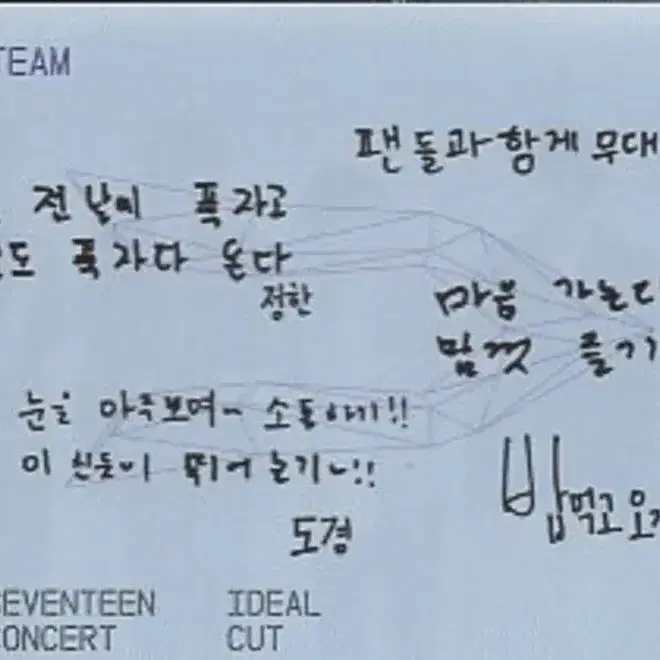 TEAM
팬들과 함께 무대
전날에 푹 자고
도 푹 자다 온다
정한
마음 가는대
맘껏 즐기
눈을 마주보며~ 소통하기!!
이 신듯이 뛰어 놀기~!!
도겸
밥먹고 오
SEVENTEEN IDEAL
CONCERT CUT